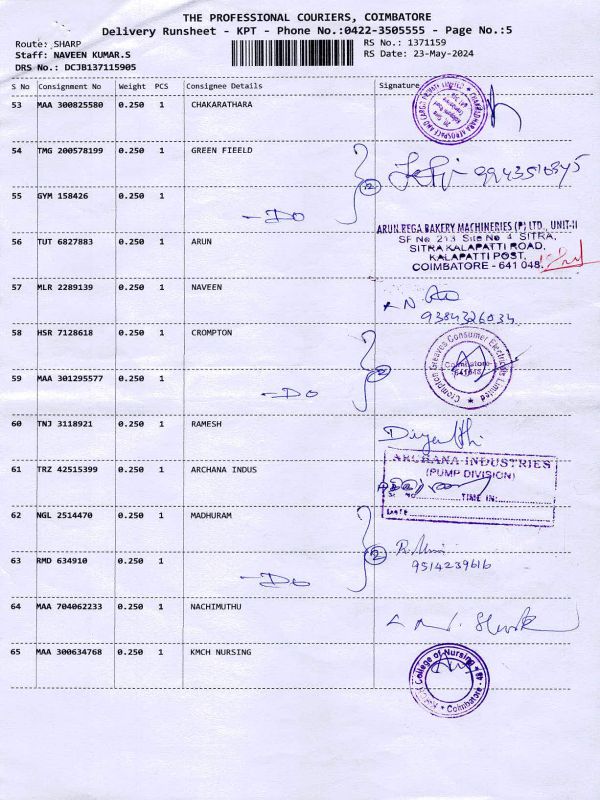 THE PROFESSIONAL COURIERS, COIMBATORE
Delivery Runsheet - KPT - Phone No.:0422-3505555 - Page No.:5
Route: SHARP
RS No.: 1371159
Staff: NAVEEN KUMAR.S
RS Date: 23-May-2024
DRS No.: DCJB137115905
S No Consignment No Weight PCS Consignee Details Signature
53 MAA 300825580 0.250 1 CHAKARATHARA
54 TMG 200578199 0.250 1 GREEN FIEELD
2
55 GYM 158426 0.250 1
- Do
ARUN REGA BAKERY MACHINERIES (P) LTD., UNIT-II
SF No 213 Site No 4 SITRA,
56 TUT 6827883 0.250 1 ARUN
SITRA KALAPATTI ROAD,
KALAPATTI POST,
COIMBATORE - 641 048.
57 MLR 2289139 0.250 1 NAVEEN
9384326034
58 HSR 7128618 0.250 1 CROMPTON
Crompton Greaves Consumer Electricals Limited
Coimbatore
641048
2
59 MAA 301295577 0.250 1
- Do
60 TNJ 3118921 0.250 1 RAMESH
ARCHANA INDUSTRIES
61 TRZ 42515399 0.250 1 ARCHANA INDUS
(PUMP DIVISION)
TIME IN:
DATE
62 NGL 2514470 0.250 1 MADHURAM
2
63 RMD 634910 0.250 1
9514239616
- Do
64 MAA 704062233 0.250 1 NACHIMUTHU
65 MAA 300634768 0.250 1 KMCH NURSING
KMCH College of Nursing
Coimbatore - 48